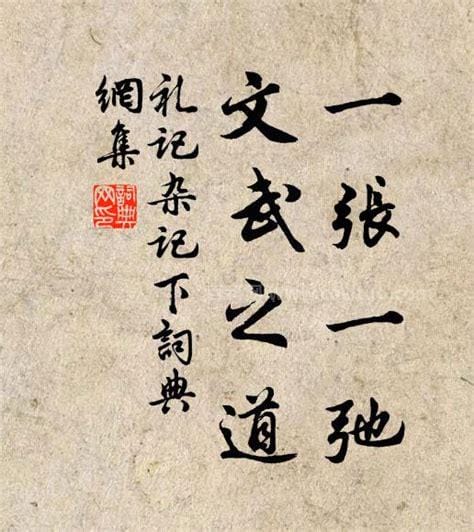 一張一弛
文武之道
礼记杂记下詞典
網集
詞典
网印